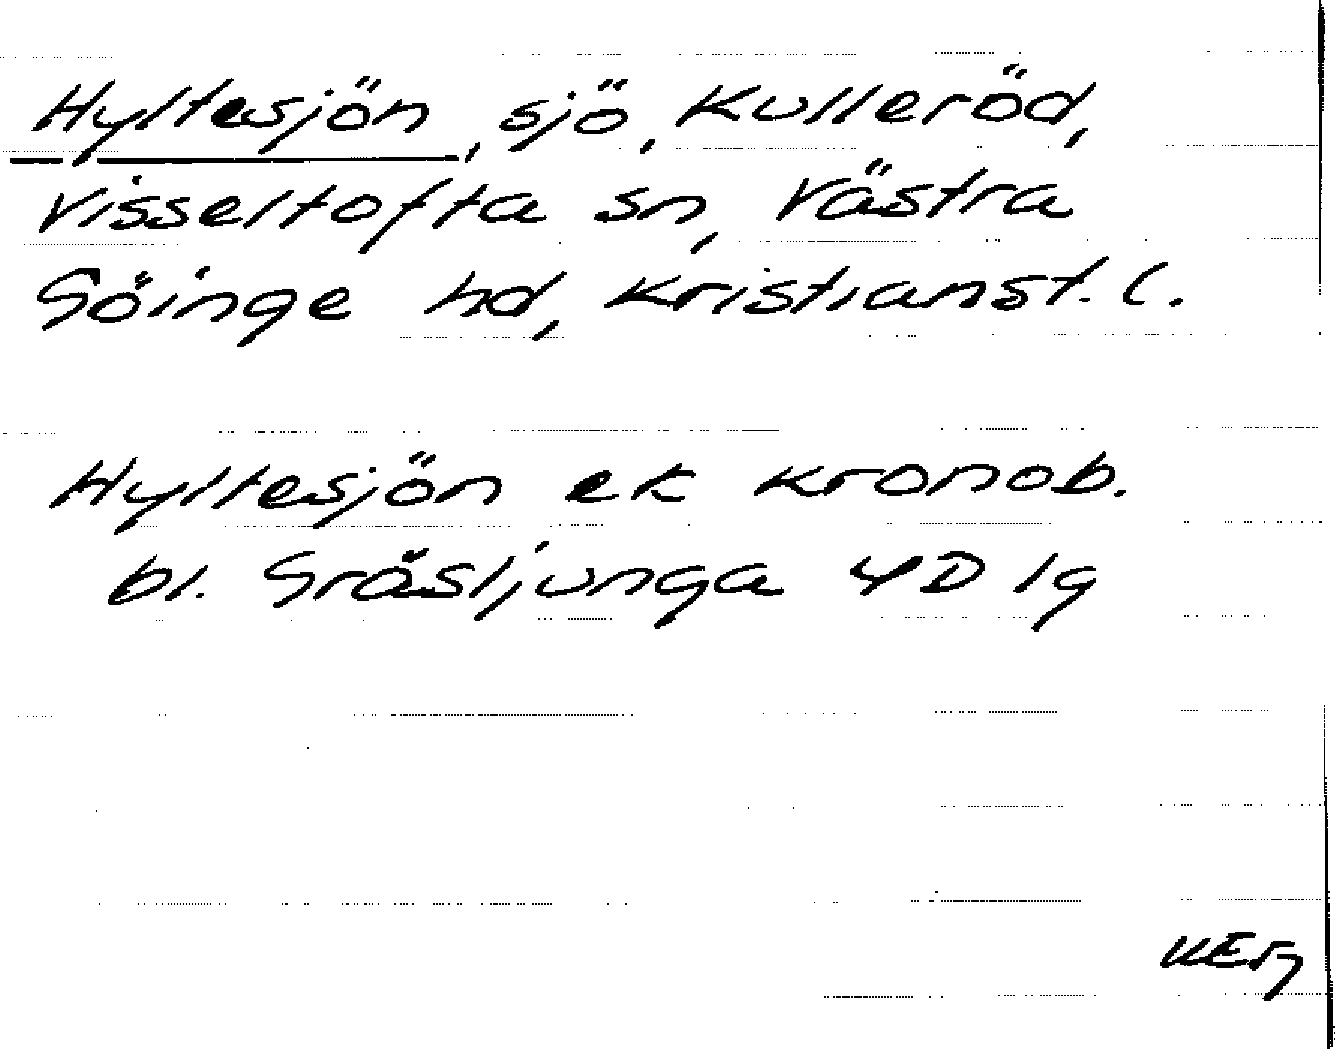 Hyltesjön, sjö, Kulleröd,
Visseltofta sn, Västra
Göinge hd, Kristianst. l.
Hyltesjön ek kronob.
bl. Gräsljunga 4D 1g